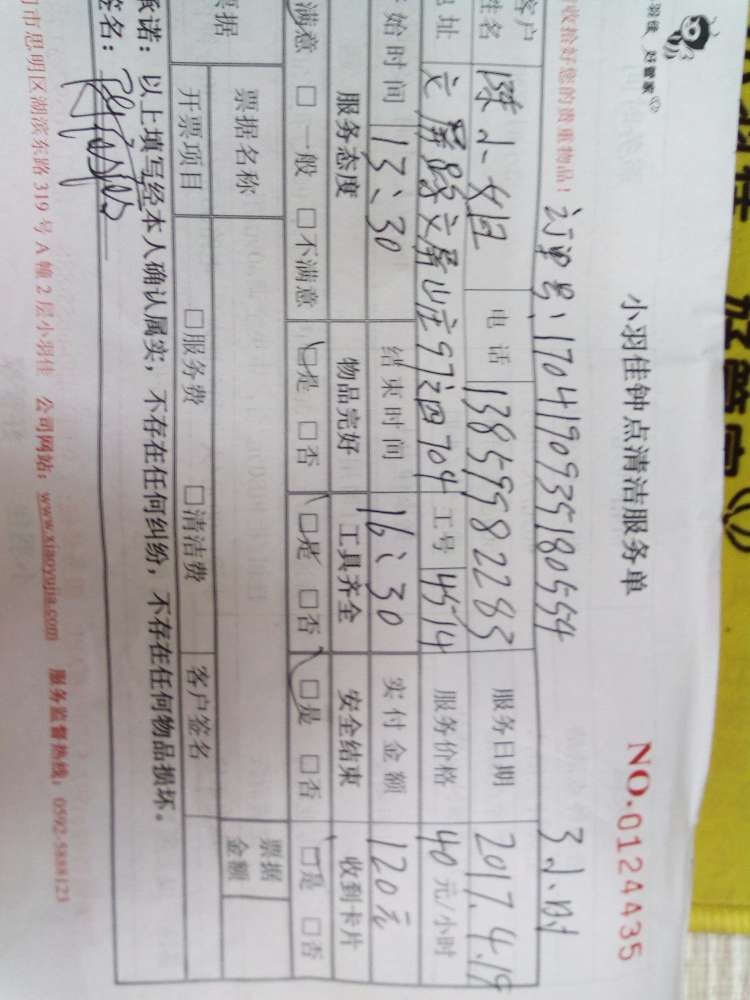 小羽佳 好管家
小羽佳钟点清洁服务单
NO.0124435
收拾好您的贵重物品！
订单号、1704190935180554
3小时
客户姓名 陈小姐 电话 13859982283 服务日期 2017.4.19
地址 文屏路文屏山庄97之四704 工号 4514 服务价格 40元/小时
开始时间 13:30 结束时间 16:30 实付金额 120元
服务态度 物品完好 工具齐全 安全结束 收到卡片
满意 □一般 □不满意 □是 □否 □是 □否 □是 □否 □是 □否
票据 票据名称 票据金额
开票项目 □服务费 □清洁费 客户签名
承诺：以上填写经本人确认属实，不存在任何纠纷，不存在任何物品损坏。
签名：
门市思明区湖滨东路319号A幢2层小羽佳 公司网站：www.xiaoyujia.com 服务监督热线：0592-5888123